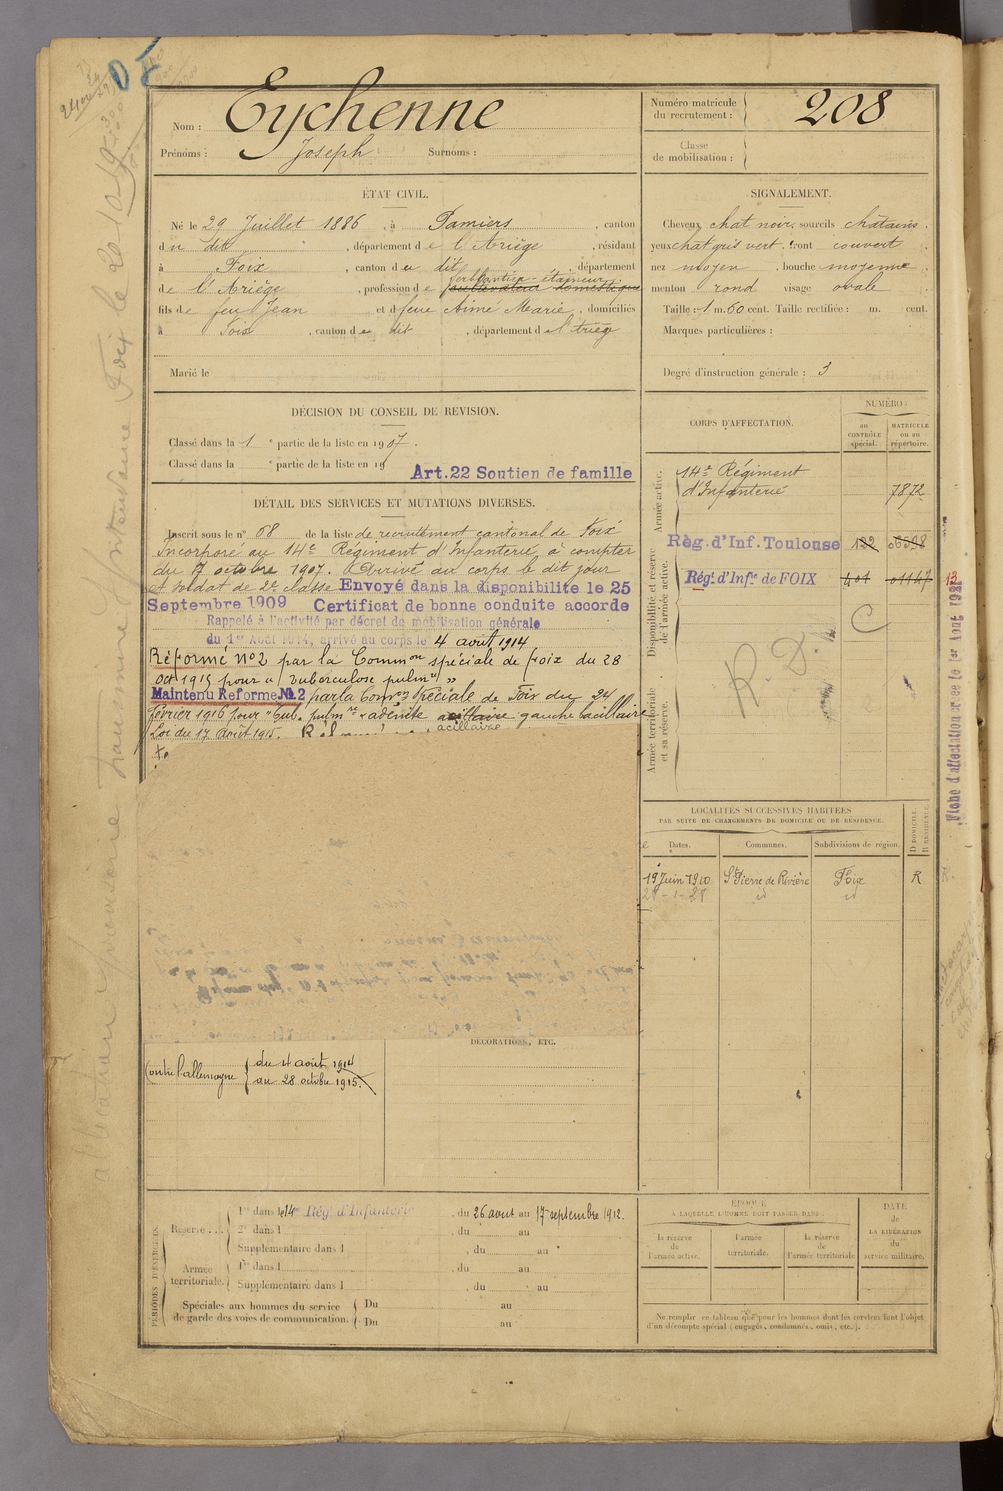 Nom : Eychenne
Prénoms : Joseph Surnoms :
Numéro matricule du recrutement : 208
Classe de mobilisation :
ÉTAT CIVIL.
Né le 29 Juillet 1886, à Pamiers, canton
du dit, département de l'Ariège, résidant
à Foix, canton du dit, département
de l'Ariège, profession de ferblantier-étameur cultivateur domestique
fils de feu Jean et de feue Aime Marie, domiciliés
à Foix, canton de dit, département de l'Ariège
Marié le
SIGNALEMENT.
Cheveux chat noir, sourcils châtains,
yeux chat gris vert, front couvert
nez moyen, bouche moyenne
menton rond visage ovale
Taille : 1 m. 60 cent. Taille rectifiée : m. cent.
Marques particulières :
Degré d'instruction générale : 3
DÉCISION DU CONSEIL DE REVISION.
Classé dans la 1e partie de la liste en 1907.
Classé dans la e partie de la liste en 19
Art.22 Soutien de famille
DÉTAIL DES SERVICES ET MUTATIONS DIVERSES.
Inscrit sous le n° 68 de la liste de recrutement cantonal de Foix
Incorporé au 14e Régiment d'Infanterie à compter
du 7 octobre 1907. Arrivé au corps le dit jour
et soldat de 2e classe Envoyé dans la disponibilite le 25
Septembre 1909 Certificat de bonne conduite accorde
Rappelé à l'activité par décret de mobilisation générale
du 1er Août 1914, arrivé au corps le 4 août 1914
Réformé n°2 par la Common spéciale de Foix du 28
Oct 1915 pour "tuberculose pulmre"
Maintenu Reforme N°2 par la Comon spéciale de Foix du 24
février 1916 pour "tub. pulmre adénite axillaire gauche bacillaire
axillaire
Loi du 17 Août 1915.
CORPS D'AFFECTATION.
NUMÉRO :
au CONTRÔLE spécial.
MATRICULE ou au répertoire.
Armée active.
14e Régiment
d'Infanterie 7872
Disponibilité et réserve de l'armée active.
Règ. d'Inf. Toulouse 132 06598
Régt d'Infie de FOIX 401 01147
R. D.
Armée territoriale et sa réserve.
Fiche d'affectation créée le 1er Aout 1921
LOCALITÉS SUCCESSIVES HABITÉES
PAR SUITE DE CHANGEMENTS DE DOMICILE OU DE RÉSIDENCE.
Dates. Communes. Subdivisions de région. D DOMICILE. R RÉSIDENCE.
19 Juin 1910 St Pierre de Rivière Foix R
28-1-28 id id
Contre l'allemagne du 4 août 1914
au 28 octobre 1915.
DÉCORATIONS, ETC.
PÉRIODES D'EXERCICES.
Réserve.... 1re dans le 14e Rég. d'Infanterie, du 26 aout au 17 septembre 1912.
2e dans l , du au
Supplémentaire dans l , du au
Armée territoriale. 1re dans l , du au
Supplémentaire dans l , du au
Spéciales aux hommes du service de garde des voies de communication. Du au
Du au
ÉPOQUE
À LAQUELLE L'HOMME DOIT PASSER DANS :
la réserve de l'armée active. l'armée territoriale. la réserve de l'armée territoriale
DATE de LA LIBÉRATION du service militaire.
Ne remplir ce tableau que pour les hommes dont les services font l'objet
d'un décompte spécial (engagés, condamnés, omis, etc.).